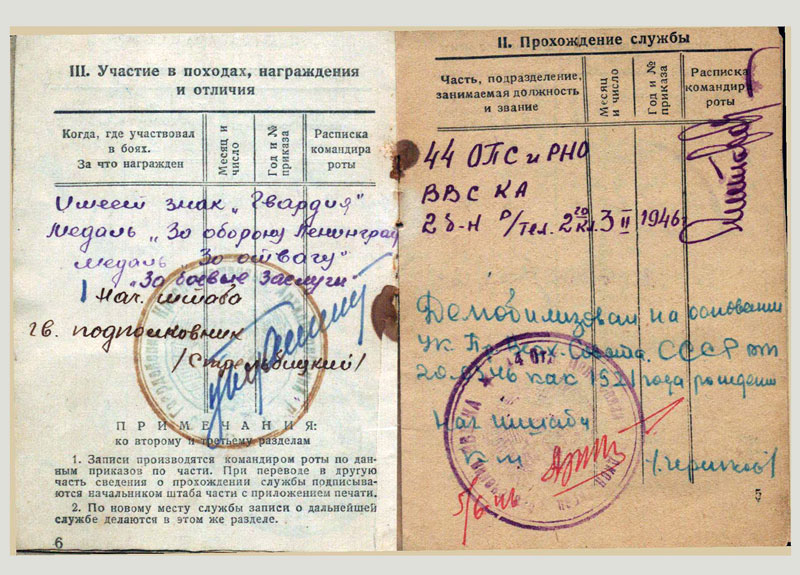 III. Участие в походах, награждения
и отличия
Когда, где участвовал
в боях.
За что награжден
Месяц и
число
Год и №
приказа
Расписка
командира
роты
Имеет знак „Гвардия"
медаль „За оборону Ленинград
медаль „За отвагу"
„За боевые заслуги"
Нач. штаба
гв. подполковник
/Стрельбицкий/
ПРИМЕЧАНИЯ:
ко второму и третьему разделам
1. Записи производятся командиром роты по дан-
ным приказов по части. При переводе в другую
часть сведения о прохождении службы подписы-
ваются начальником штаба части с приложением печати.
2. По новому месту службы записи о дальнейшей
службе делаются в этом же разделе.
6
II. Прохождение службы
Часть, подразделение,
занимаемая должность
и звание
Месяц
и число
Год и №
приказа
Расписка
командира
роты
44 ОПС и РНО
ВВС КА
2 б-н р/тел. 2го кл. 3 II 1946
Демобилизован на основании
Ук През. Верх. Совета СССР от
как 1921 года рождения
Нач штаба
5